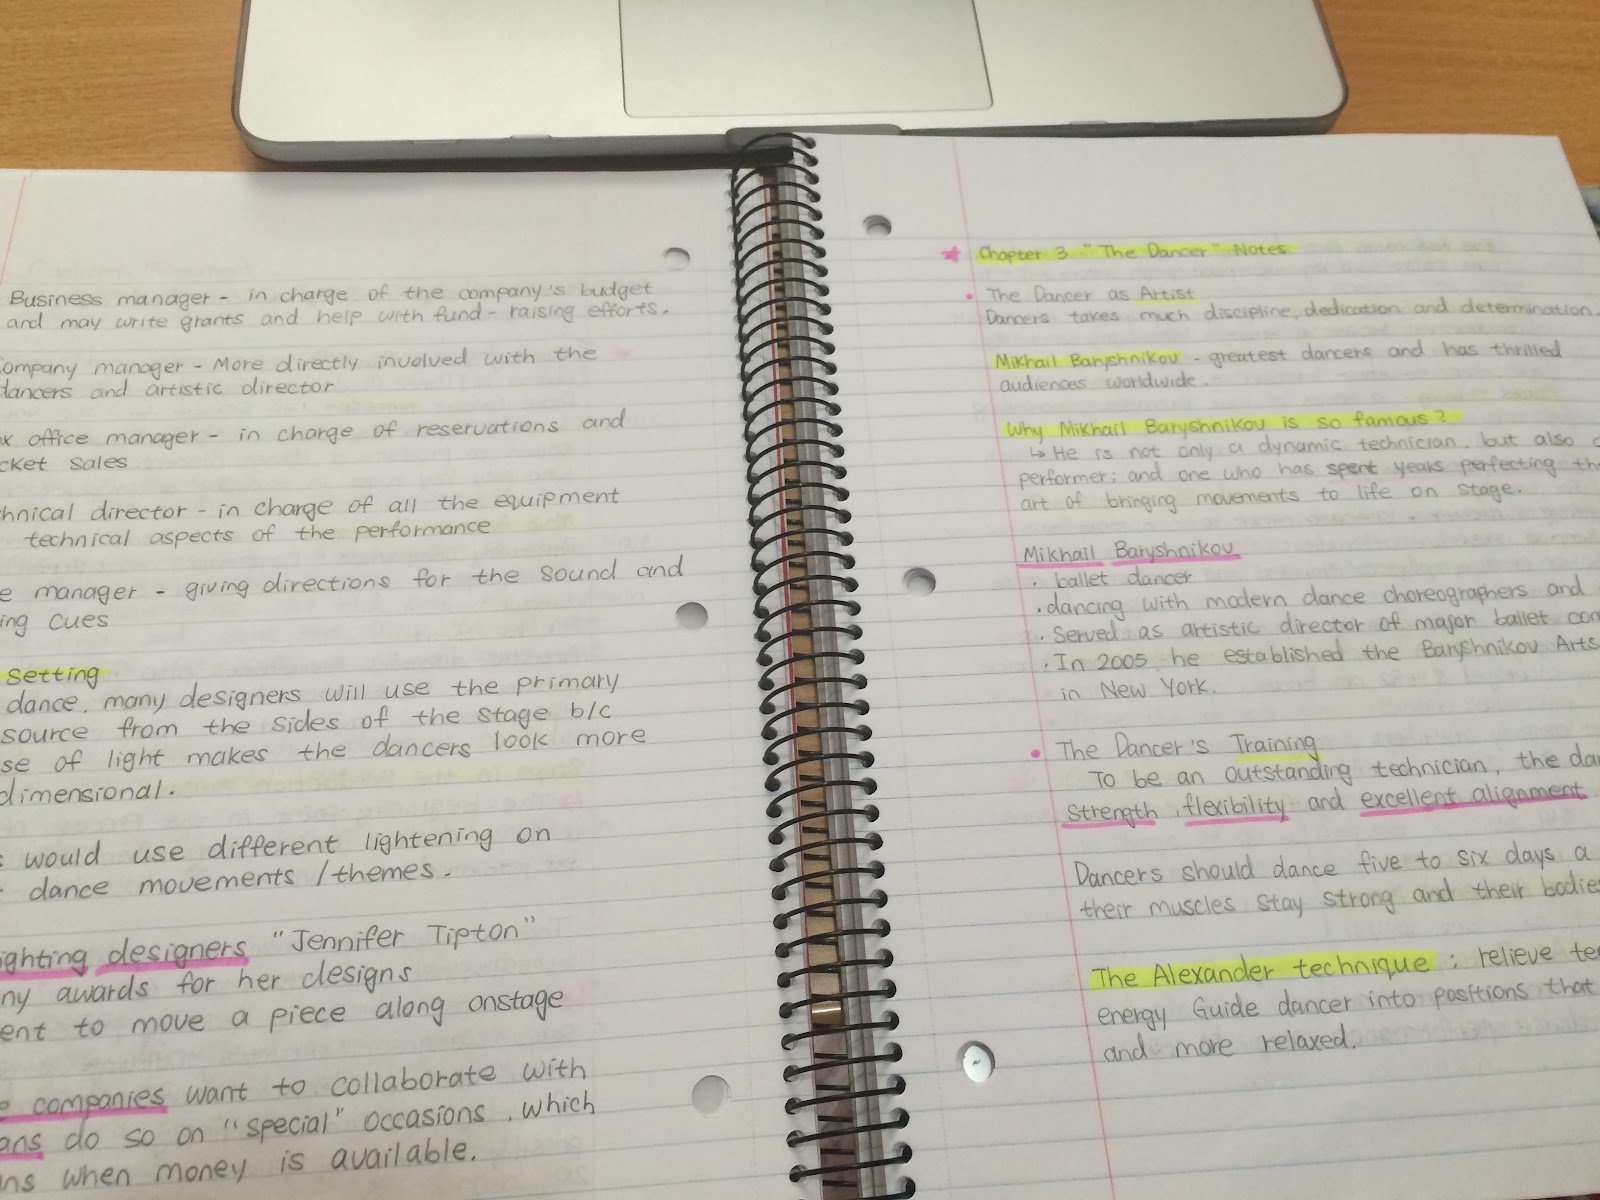 Business manager - in charge of the company's budget
and may write grants and help with fund-raising efforts.
manager - More directly involved with the
dancers and artistic director
office manager - in charge of reservations and
sales
director - in charge of all the equipment
technical aspects of the performance
manager - giving directions for the sound and
cues
Setting
dance, many designers will use the primary
source from the sides of the stage b/c
of light makes the dancers look more
dimensional.
would use different lightening on
dance movements / themes.
designers "Jennifer Tipton"
awards for her designs
to move a piece along onstage
companies want to collaborate with
do so on "special" occasions, which
when money is available.
Chapter 3 "The Dancer" Notes
• The Dancer as Artist
Dancers takes much discipline, dedication and determination.
Mikhail Baryshnikov - greatest dancers and has thrilled
audiences worldwide.
Why Mikhail Baryshnikov is so famous?
↳ He is not only a dynamic technician, but also
performer; and one who has spent years perfecting
art of bringing movements to life on stage.
Mikhail Baryshnikov
· ballet dancer
· dancing with modern dance choreographers and
· Served as artistic director of major ballet
· In 2005, he established the Baryshnikov Arts
in New York.
• The Dancer's Training
To be an outstanding technician, the
strength, flexibility and excellent alignment
Dancers should dance five to six days a
their muscles stay strong and their
The Alexander technique : relieve
energy Guide dancer into positions that
and more relaxed.